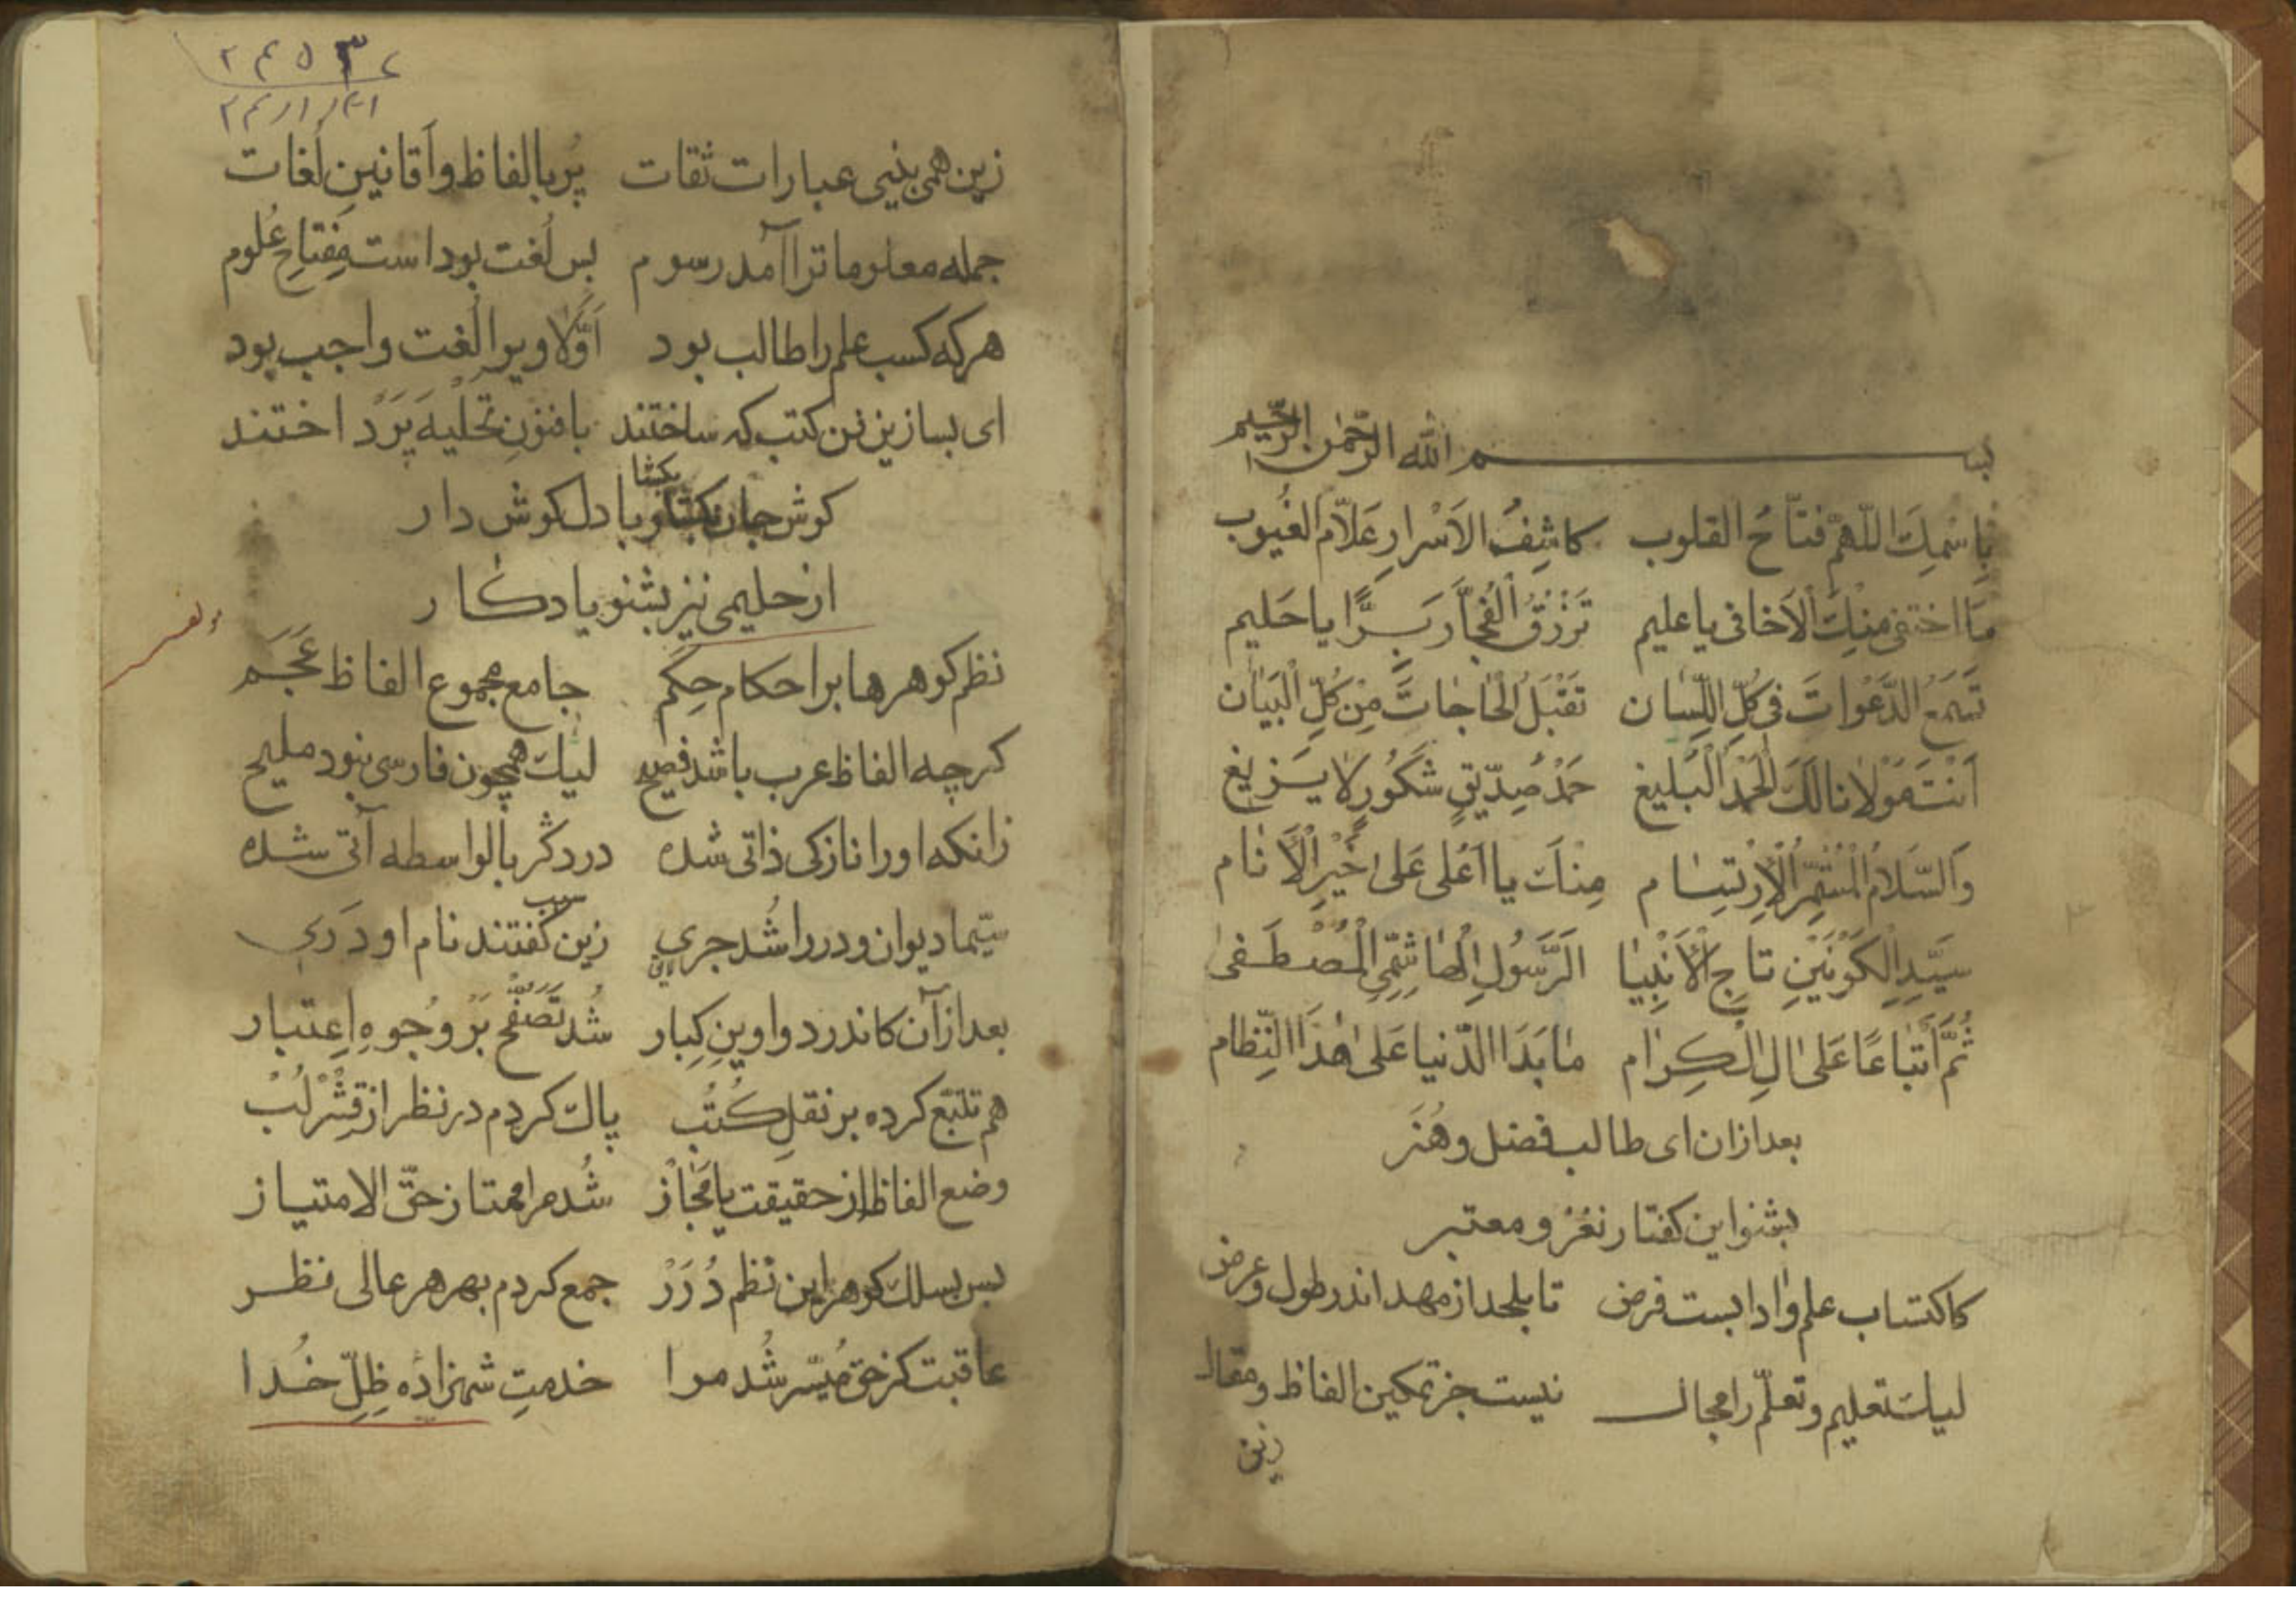 بسم الله الرّحمن الرّحيم
بِاسْمِكَ اللّٰهمّ فتّاحُ القلوب كاشِفُ الاَسْرارِ عَلّام الغُيوب
مَا اختفى منْكَ الاَخافى يا عليم تَرْزُقُ الْفُجّارَ بِرًّا يا حَليم
تَسْمَعُ الدَّعْواتَ فى كُلِّ اللِّسان تَقْبَلُ الْحٰاجٰاتَ مِنْ كُلِّ الْبَيَان
اَنْتَ مَوْلانا لَكَ الْحَمْدُ الْبَليغ حَمْدُ صِدّيقٍ شَكُورٍ لا يَزيغ
وَالسّلامُ الْمُسْتَمِرُّ الْاِرْتِسٰام مِنْكَ يا اَعْلى عَلىٰ خَيْرِ الْاَنٰام
سَيّدِ الْكَوْنَيْنِ تاجِ الْاَنْبِيٰا الرَّسُولِ الْهٰاشِمِيّ الْمُصْطَفىٰ
ثُمَّ اَتْبٰاعًا عَلىٰ الِ الْكِرٰام مٰا بَدَا الدّنيا عَلىٰ هٰذَا النِّظام
بعد ازان اى طالب فضل و هُنَر
بشنو اين كفتار نَغْز و معتبر
كاكتساب علم و ادابست فرض تا بلحد از مهد اندر طول و عرض
ليك تعليم و تعلّم را مجال نيست جز تمكين الفاظ و مقال
زين
۲۴۵۳۷
زين همى بينى عبارات ثقات پُر بالفاظ و اَفانينِ لُغات
جمله معلوماترا آمد رسوم بس لُغت بوداست مِفتاحِ عُلوم
هركه كسب علم را طالب بود اَوّلًا ويرا لُغت واجب بود
اى بسا زين فن كتب كه ساختند با فنونِ تحليه پَرداختند
كوش جان بكشا و با دل كوش دار
بكشا
از حليمى نيز بشنو يادكار
نظم كوهرها بر احكام حِكَم جامع مجموع الفاظ عَجَم
كرچه الفاظ عرب باشد فصيح ليك همچون فارسى نبود مليح
زانكه اورا نازكى ذاتى شده در دكر بالواسطه آتى شده
سيّما ديوان و در را شُد جرى زين كفتند نام او دَرى
سبب
بعد ازآن كاندر دواوينِ كِبار شُد تَصَفُّح بَر وُجوهِ اِعتبار
هم تتبّع كرده بر نقلِ كُتُب پاك كردم در نظر از قِشْر لُبْ
وضع الفاظ از حقيقت يا مَجٰاز شُد مرا ممتاز حقّ الامتياز
بس بسلك كوهر اين نظم دُرَرْ جمع كردم بهر هر عالى نظر
عاقبت كز حق مُيسّر شُد مرا خدمتِ شهزاده ظِلِّ خُدا